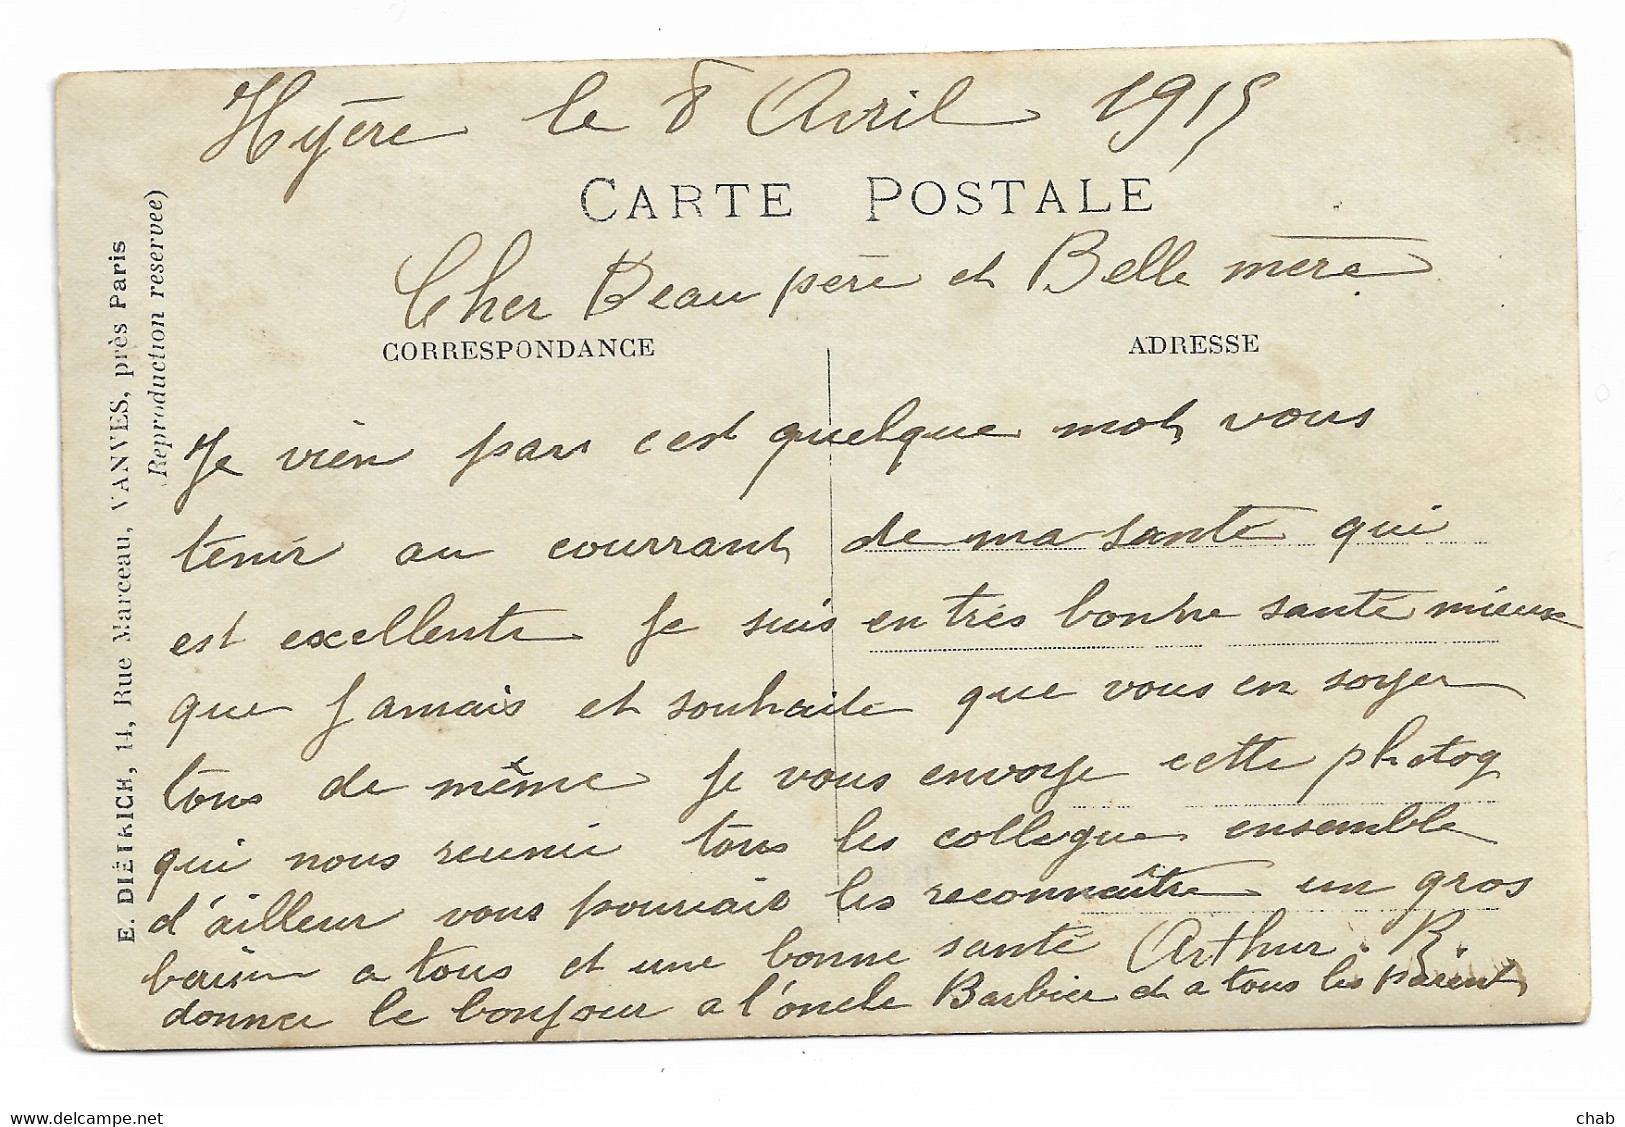 Hyère le 8 Avril 1915
CARTE POSTALE
Cher Beau père et Belle mère
CORRESPONDANCE
ADRESSE
Je vien par c'est quelque mot vous
tenir au courrant de ma santé qui
est excellente Je suis en très bonne santé mieux
que Jamais et souhaite que vous en soyer
tous de même Je vous envoye cette photog
qui nous reunie tous les collegue ensemble
d'ailleur vous pouriait les reconnaître un gros
baisir a tous et une bonne santé Arthur. R.
donner le bonjour a l'oncle Barbier et a tous les parent
E. DIÉTRICH, 14, Rue Marceau, VANVES, près Paris
(Reproduction reservee)
www.delcampe.net
chab